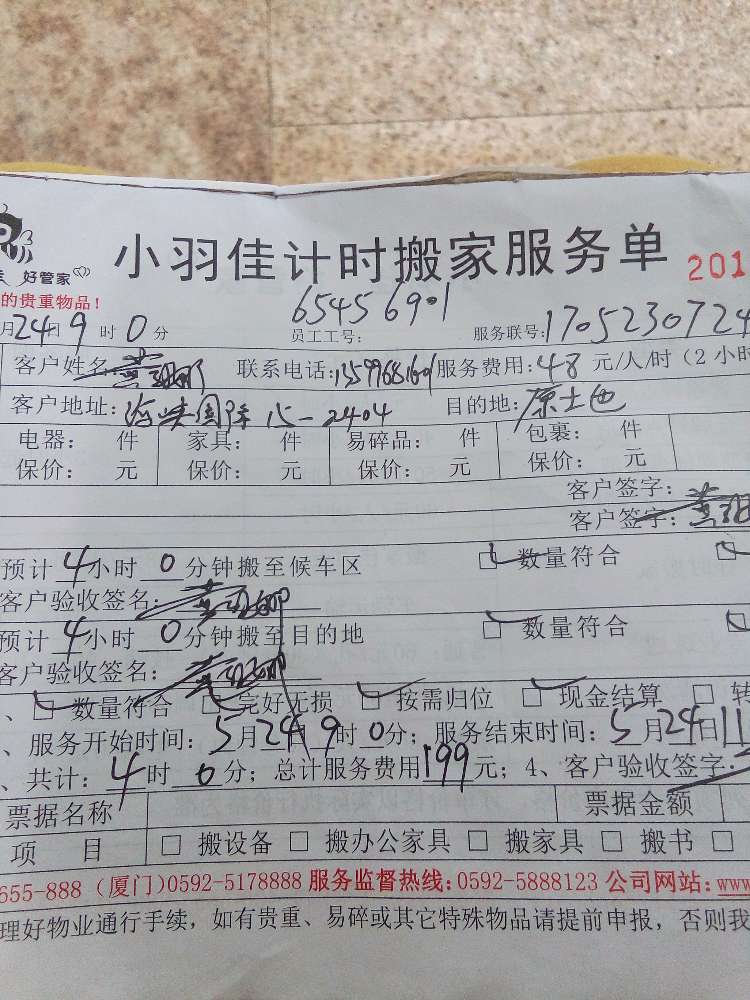 小羽佳计时搬家服务单
201
好管家
的贵重物品！
月24日9时0分 员工工号：65456901 服务联号：1705230724
客户姓名 联系电话： 服务费用：48元/人/时（2小时
客户地址：海峡国际15-2404 目的地：原土也
电器： 件 家具： 件 易碎品： 件 包裹： 件
保价： 元 保价： 元 保价： 元 保价： 元
客户签字：
客户签字：
预计4小时0分钟搬至候车区 □数量符合
客户验收签名：
预计4小时0分钟搬至目的地 □数量符合
客户验收签名：
、□数量符合 □完好无损 □按需归位 □现金结算 □转
、服务开始时间：5月24日9时0分；服务结束时间：5月24日11
、共计：4时0分；总计服务费用199元；4、客户验收签字：
票据名称 票据金额
项目 □搬设备 □搬办公家具 □搬家具 □搬书 □
655-888（厦门）0592-5178888 服务监督热线：0592-5888123 公司网站：www
理好物业通行手续，如有贵重、易碎或其它特殊物品请提前申报，否则我